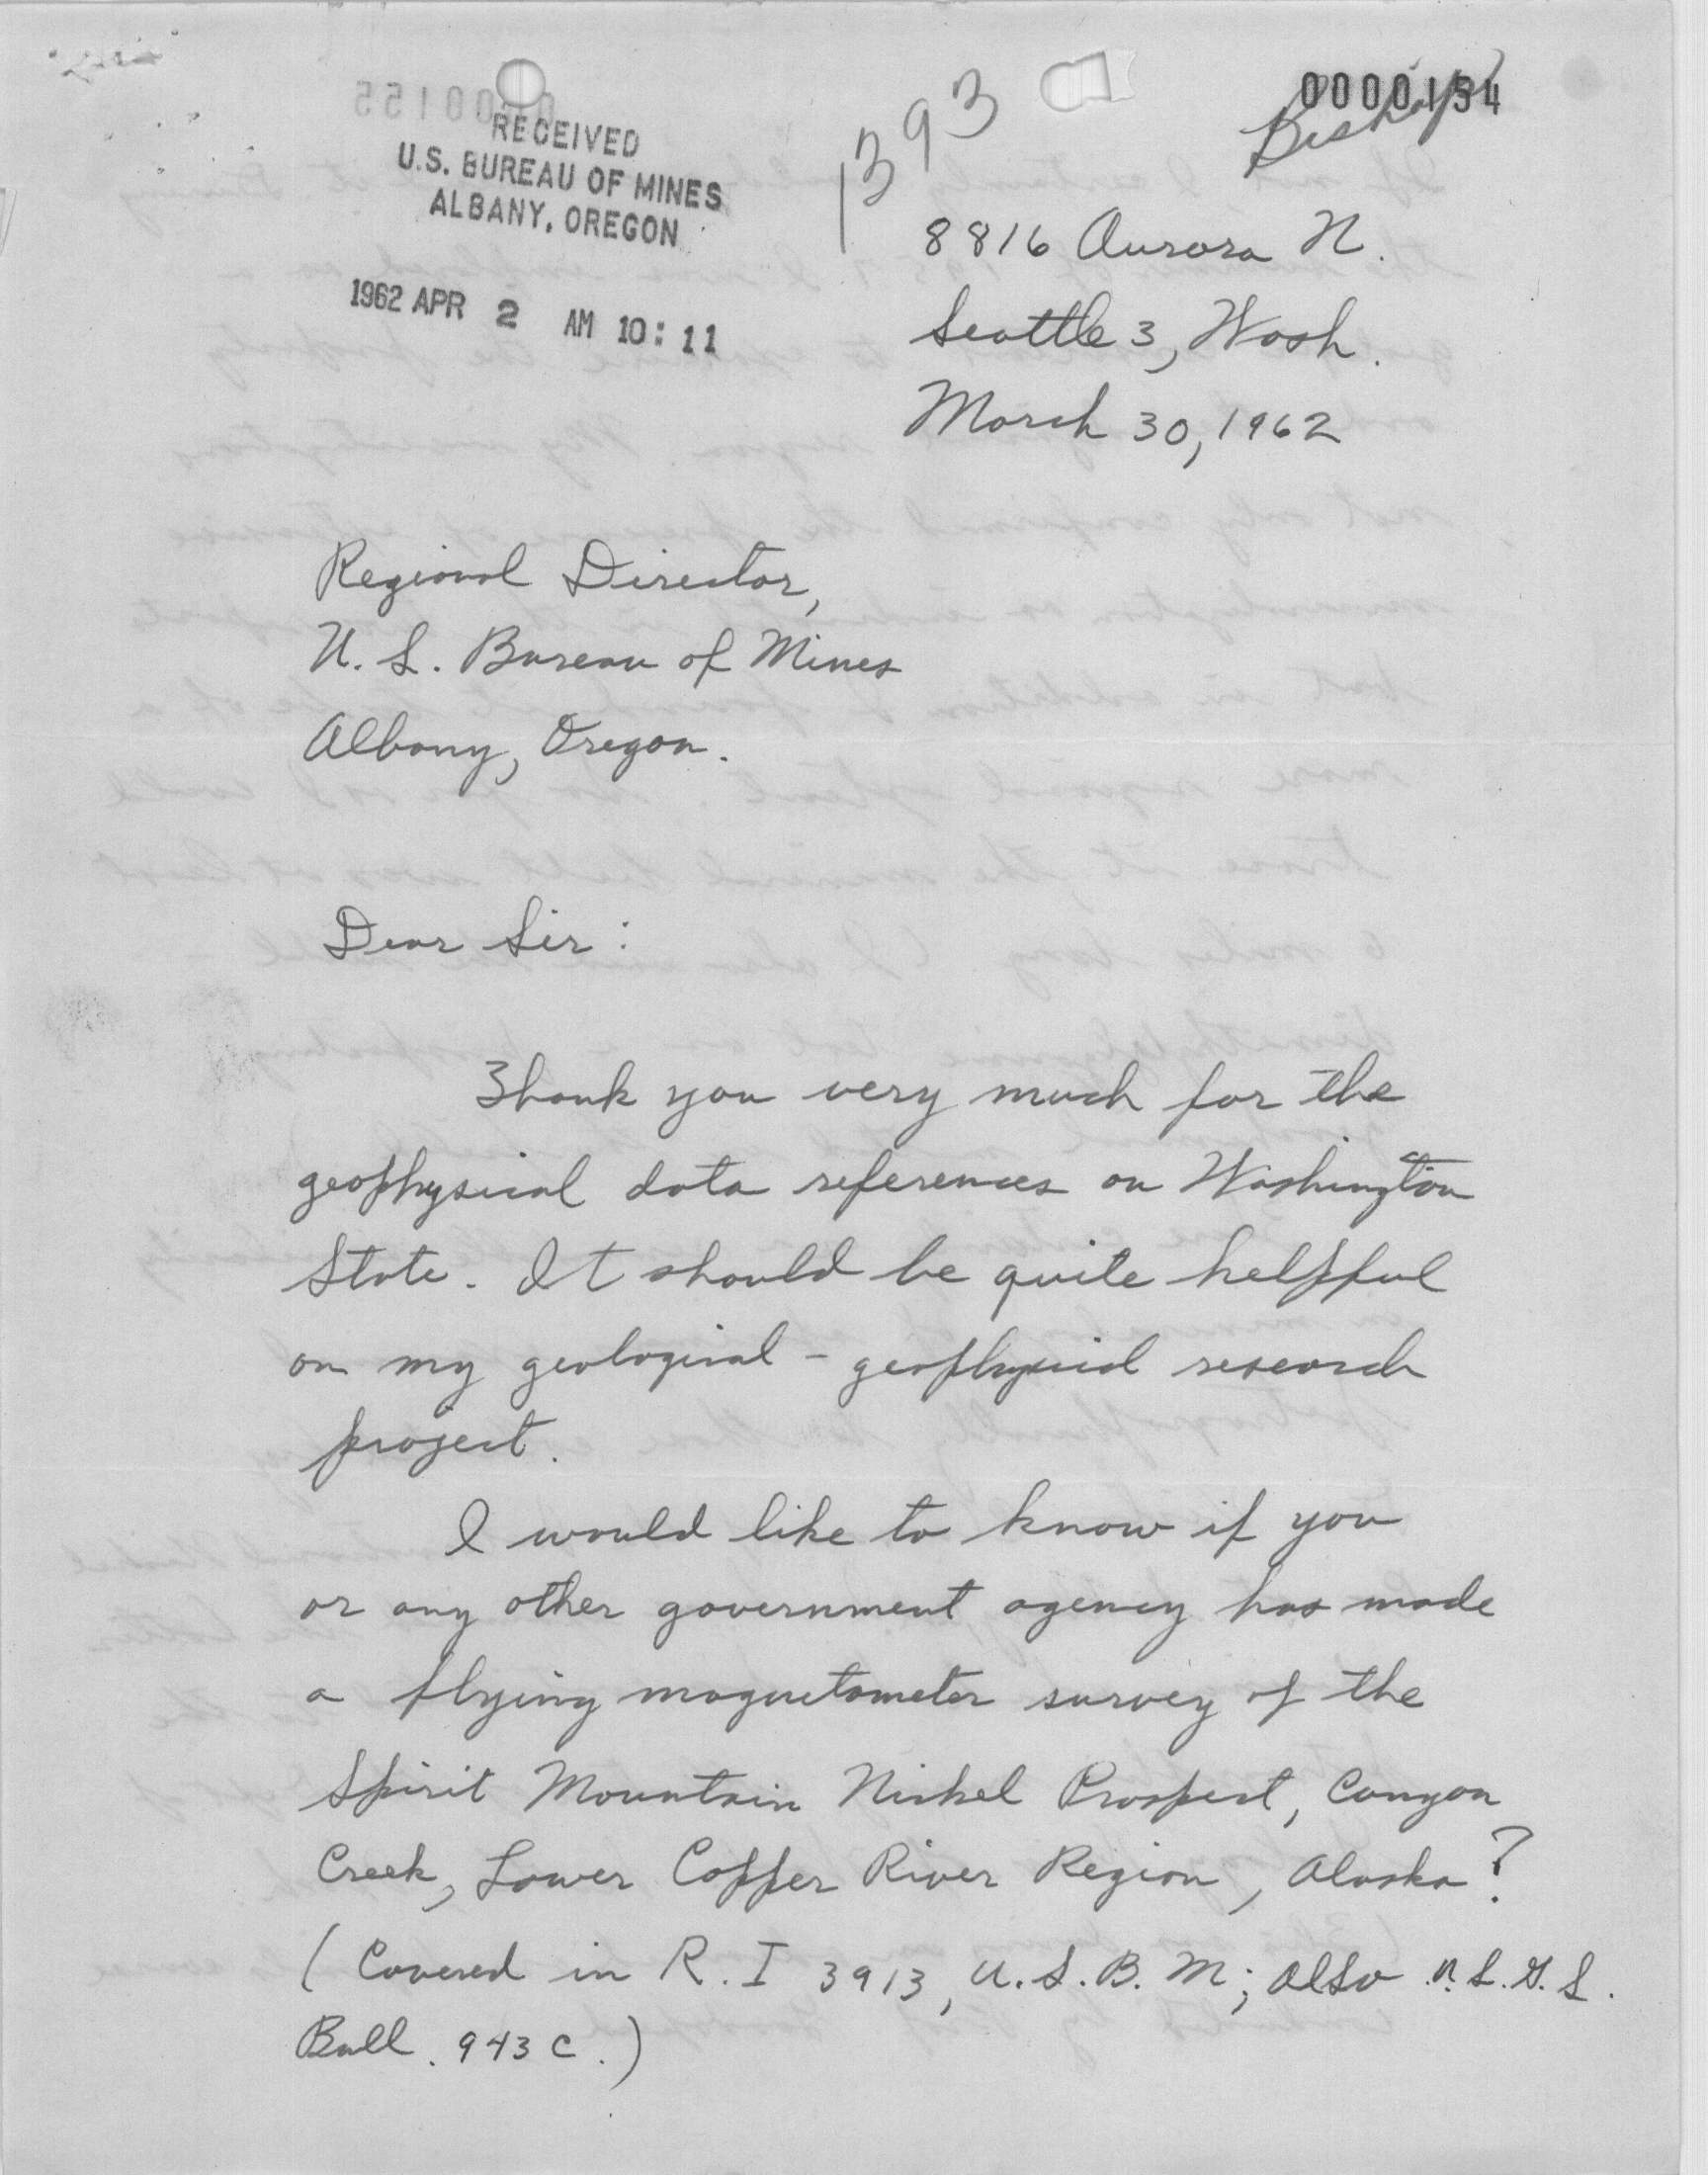 0000154
Bishop
1393
RECEIVED
U.S. BUREAU OF MINES
ALBANY, OREGON
1962 APR 2 AM 10:11
8816 Aurora N.
Seattle 3, Wash.
March 30, 1962
Regional Director,
U. S. Bureau of Mines
Albany, Oregon.
Dear Sir:
Thank you very much for the
geophysical data references on Washington
State. It should be quite helpful
on my geological - geophysical research
project.
I would like to know if you
or any other government agency has made
a flying magnetometer survey of the
Spirit Mountain Nickel Prospect, Canyon
Creek, Lower Copper River Region, Alaska?
(Covered in R. I 3913, U. S. B. M; also U. S. G. S.
Bull. 943 C.)